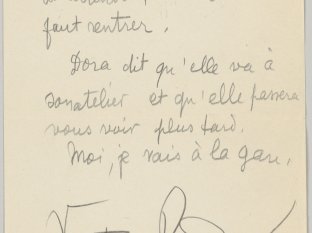 faut rentrer.
Dora dit qu'elle va à
son atelier et qu'elle passera
vous voir plus tard.
Moi, je vais à la gare.